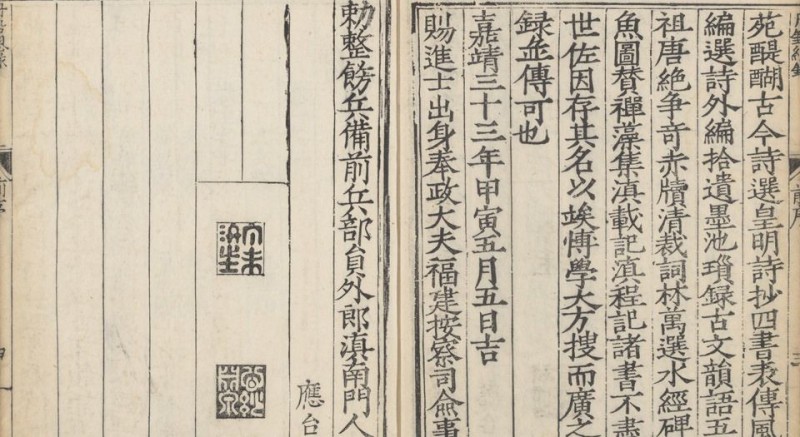 苑醍醐古今詩選皇明詩抄四書表傳風
編選詩外編拾遺墨池瑣録古文韻語五
祖唐絶争竒赤牘清裁詞林萬選水經碑
魚圖賛禪藻集滇載記滇程記諸書不盡
世佐因存其名以竢愽學大方搜而廣之
録並傳可也
嘉靖三十三年甲寅五月五日吉
賜進士出身奉政大夫福建按察司僉事
勅整飭兵備前兵部員外郎滇南門人
應台